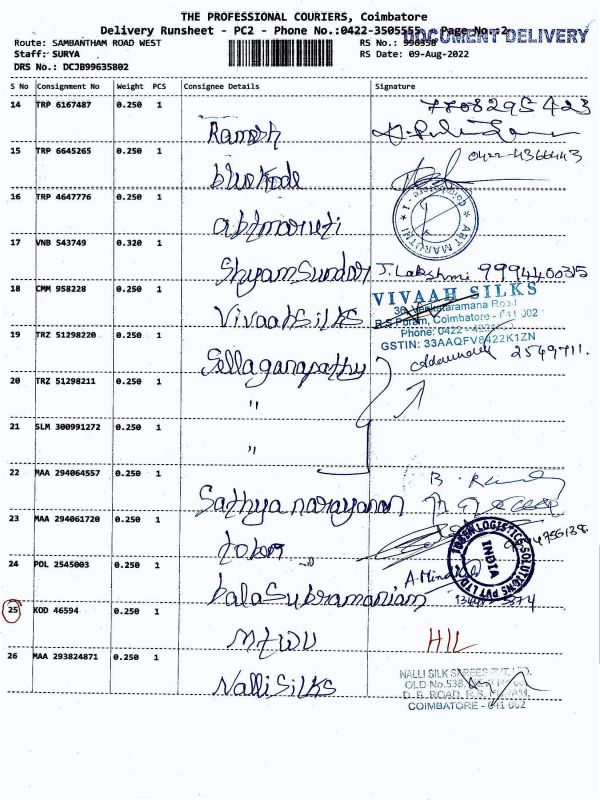 THE PROFESSIONAL COURIERS, Coimbatore
Delivery Runsheet - PC2 - Phone No.:0422-3505555 Page No.:2
DOCUMENT DELIVERY
Route: SAMBANTHAM ROAD WEST RS No.: 996358
Staff: SURYA RS Date: 09-Aug-2022
DRS No.: DCJB99635802
S No Consignment No Weight PCS Consignee Details Signature
14 TRP 6167487 0.250 1 Ramesh 7708295423
15 TRP 6645265 0.250 1 0422-4366443
16 TRP 4647776 0.250 1 abtmaruti
ABT MARUTHI
17 VNB 543749 0.320 1 Shyam Sundar J. Lakshmi 9994400315
18 CMM 958228 0.250 1 Vivaah Silks
VIVAAH SILKS
36, Venkataramana Road
R.S Puram, Coimbatore - 641 002
Phone: 0422 -
GSTIN: 33AAQFV8422K1ZN
19 TRZ 51298220 0.250 1 Sellaganapathy 2549711.
20 TRZ 51298211 0.250 1 "
21 SLM 300991272 0.250 1 "
22 MAA 294064557 0.250 1 Sathya narayanan
23 MAA 294061720 0.250 1
LOGISTICS SOLUTIONS PVT LTD
INDIA
24 POL 2545003 0.250 1 balaSubramaniam
25 KOD 46594 0.250 1 HIL
26 MAA 293824871 0.250 1 Nalli Silks
NALLI SILK SAREES PVT. LTD.
OLD No.538,
D. B. ROAD, R.S. PURAM,
COIMBATORE - 641 002